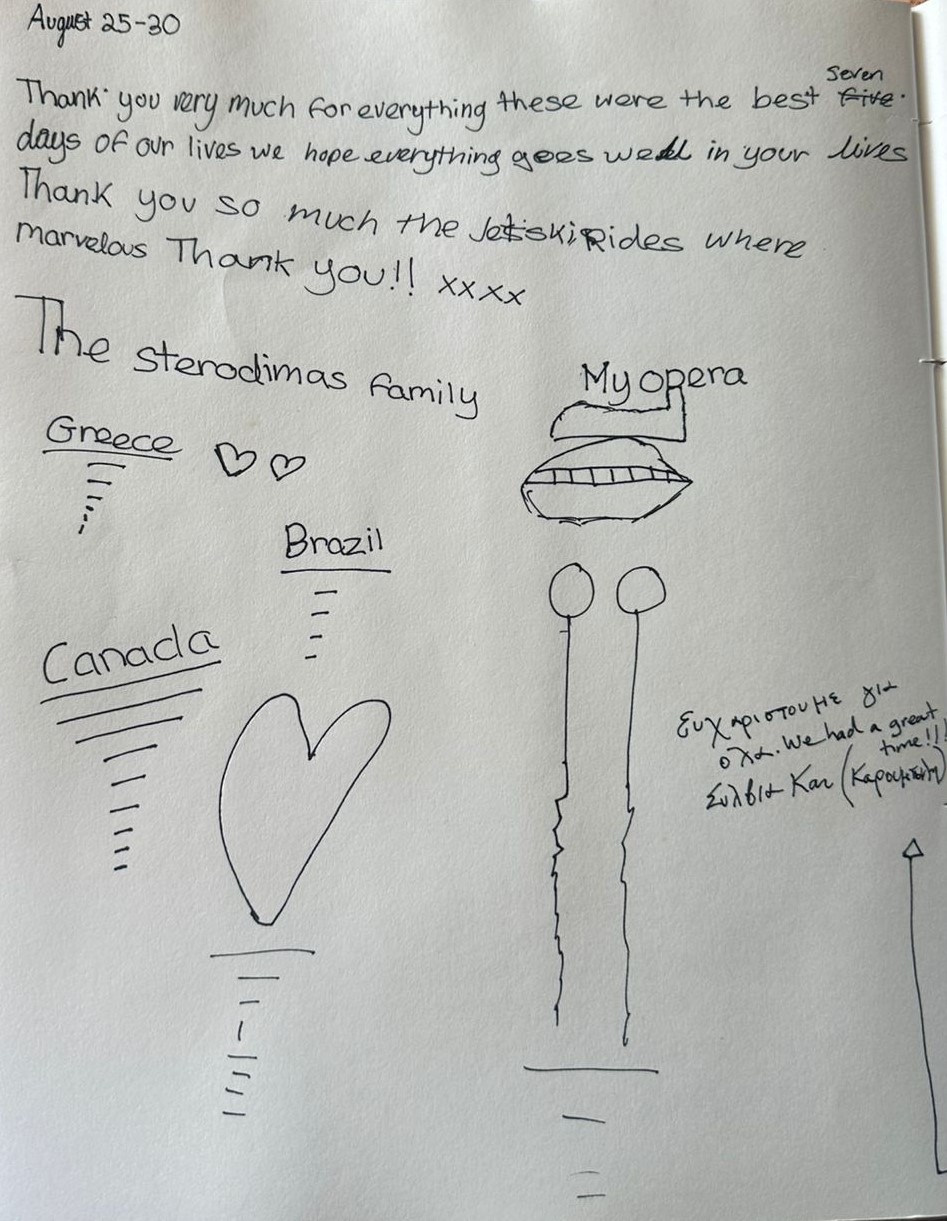 August 25-30
Thank you very much for everything these were the best five seven
days of our lives we hope everything goes well in your lives
Thank you so much the Jetski Rides where
marvelous Thank you!! xxxx
The sterodimas family
Greece
My opera
Brazil
Canada
Ευχαριστουμε για
ολα. We had a great
time!!!
Συλβια Και